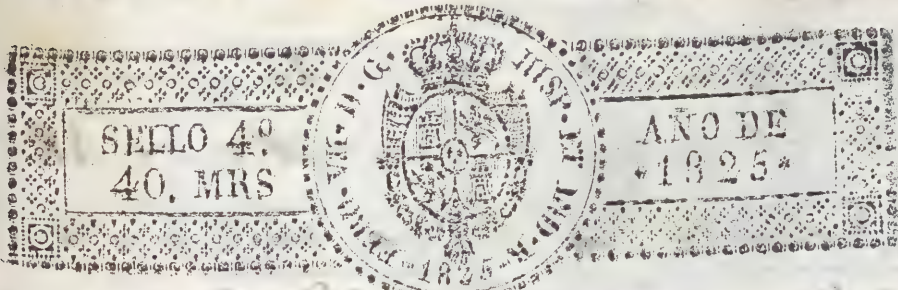 SELLO 4.º
40. MRS
FERD. VII. D. G. HISP. ET IND. R.
AÑO DE
*1825*
*1825*